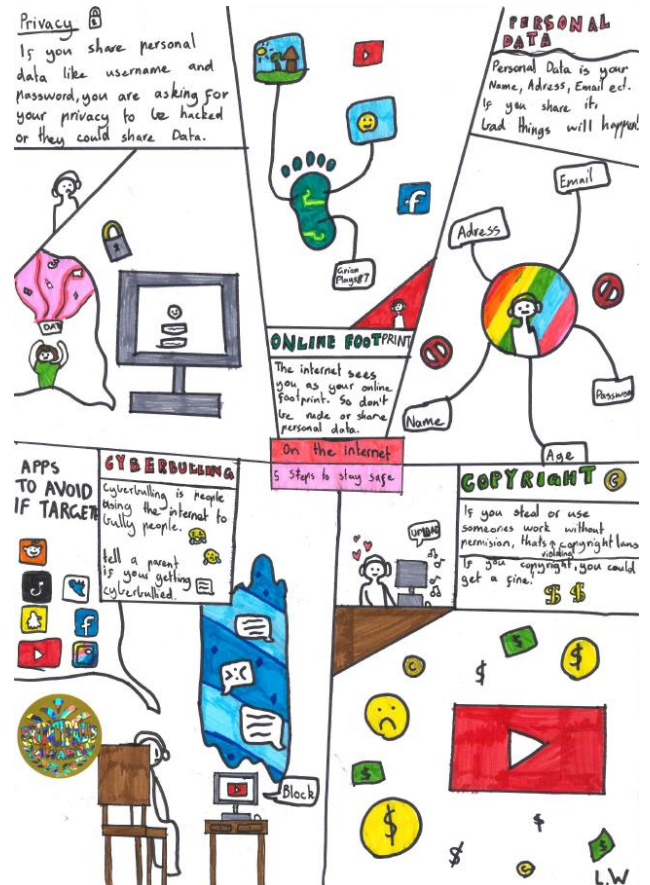 Privacy
If you share personal
data like username and
password, you are asking for
your privacy to be hacked
or they could share Data.
DAT
Plays87
ONLINE FOOTPRINT
The internet sees
you as your online
footprint. So don't
be rude or share
personal data.
PERSONAL
DATA
Personal Data is your
Name, Adress, Email ect.
If you share it,
bad things will happen!
Email
Adress
Name
Age
On the internet
5 steps to stay safe
APPS
TO AVOID
IF TARGET
CYBERBULLING
cyberbulling is people
using the internet to
bully people.
tell a parent
if your getting
cyberbullied.
>:(
Block
COPYRIGHT ©
If you steal or use
someones work without
permision, thats violating copyright laws
If you copyright, you could
get a fine.
$ $
L.W